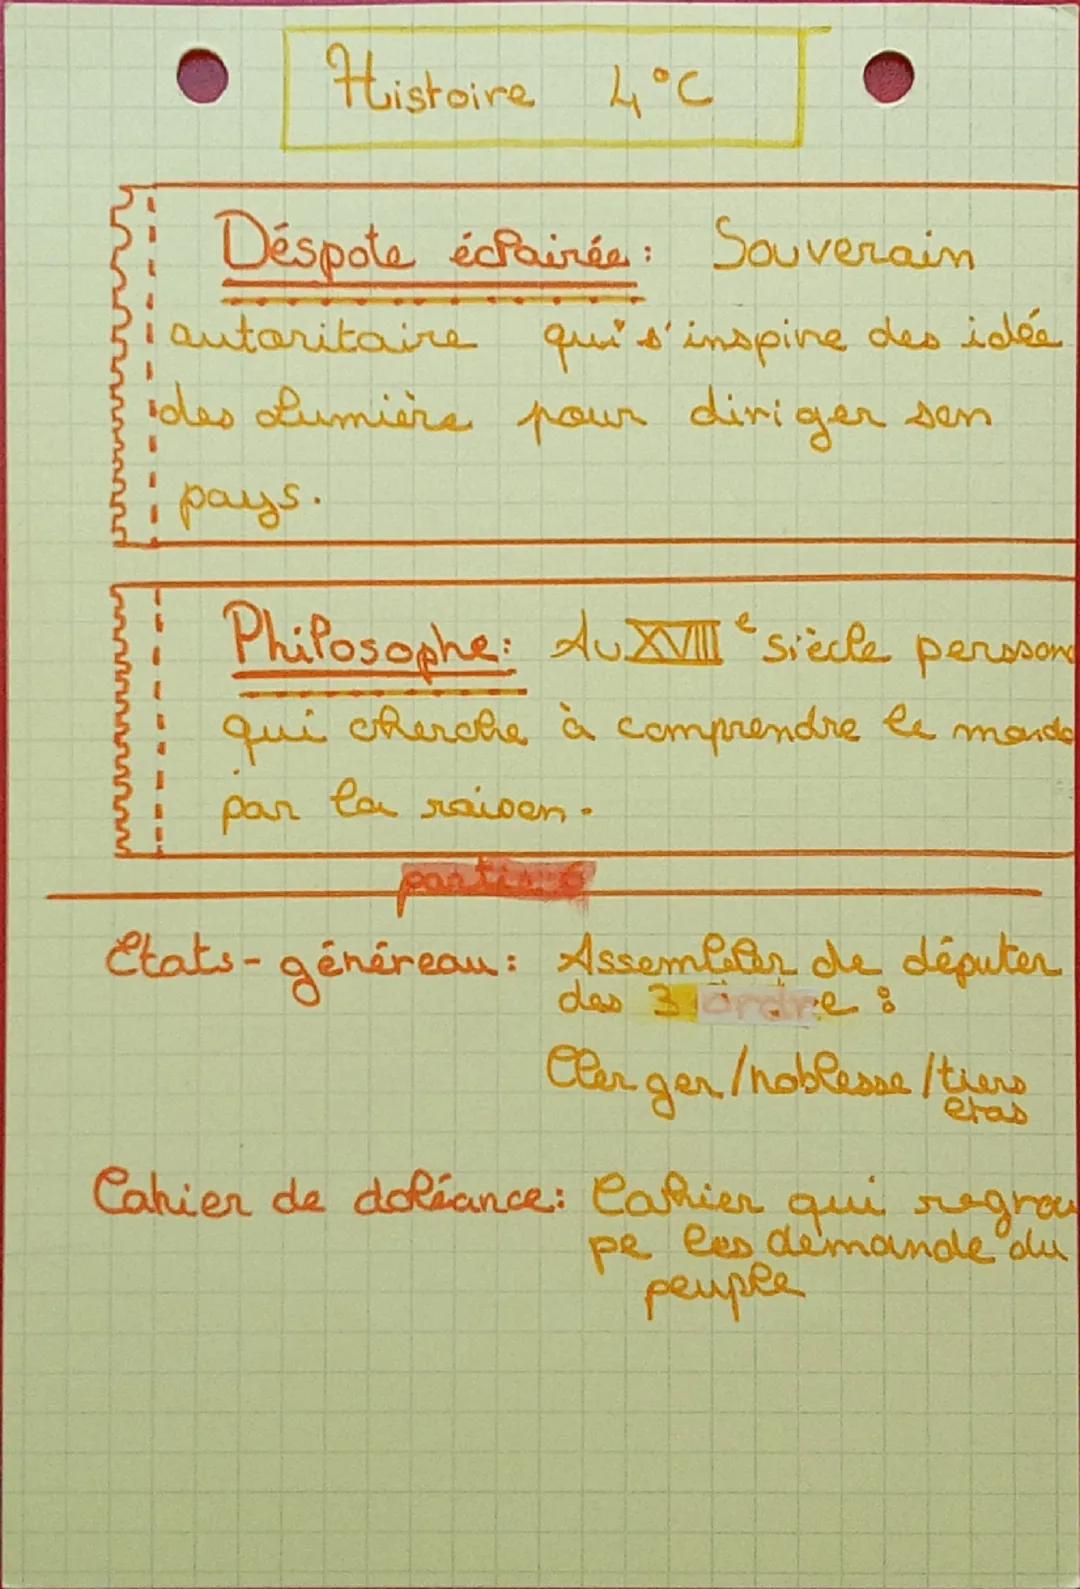 Histoire 4°C
Déspote éclairée: Souverain
autoritaire qui s'inspire des idée
des Lumière pour diriger son
pays.
Philosophe: Au XVIII e siècle personn
qui cherche à comprendre le monde
par la raison.
partie 6
Etats-généreau: Assembler de députer
des 3 ordre:
Clerger/noblesse/tiers
etas
Cahier de doléance: Cahier qui regrou
pe les demande du
peuple